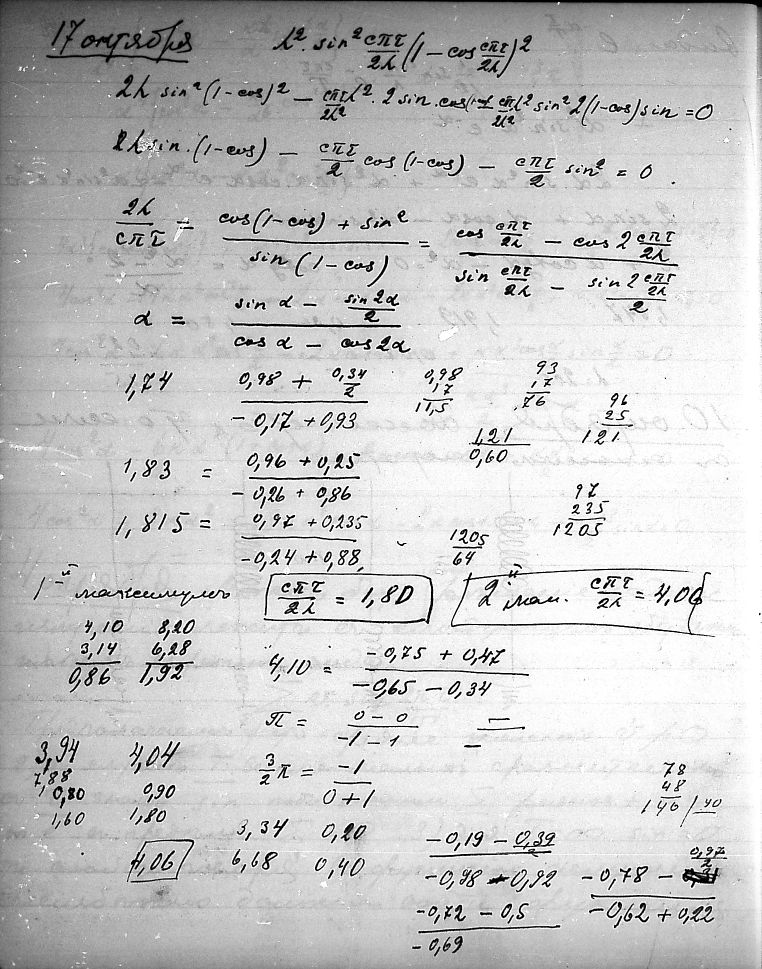 17 октября
λ² · sin² cπτ/2λ (1 − cos cπτ/2λ)²
2λ sin² (1−cos)² − cπτ/2λ² λ² · 2 sin · cos(1− cπτ/2λ² λ² sin² 2(1−cos) sin = 0
2λ sin · (1−cos) − cπτ/2 cos (1−cos) − cπτ/2 sin² = 0.
2λ/cπτ = (cos(1−cos) + sin²)/(sin (1−cos)) = (cos cπτ/2λ − cos 2 cπτ/2λ)/(sin cπτ/2λ − (sin 2 cπτ/2λ)/2)
α = (sin α − sin 2α/2)/(cos α − cos 2α)
1,74 (0,98 + 0,34/2)/(−0,17 + 0,93)
0,98
17
11,5
93
17
,76
96
25
121
1,21
0,60
1,83 = (0,96 + 0,25)/(−0,26 + 0,86)
1,815 = (0,97 + 0,235)/(−0,24 + 0,88)
97
235
1205
1205
64
1-й максимумъ cπτ/2λ = 1,80 2й мак. cπτ/2λ = 4,06
4,10 8,20
3,14 6,28
0,86 1,92
4,10 = (−0,75 + 0,47)/(−0,65 − 0,34)
π = (0 − 0)/(−1 − 1)
3/2 π = −1/(0+1)
3,94 4,04
7,88
0,80 0,90
1,60 1,80
4,06
78
48
146 / 40
3,34 0,20
6,68 0,40
−0,19 − 0,39/2
−0,98 − 0,92
−0,72 − 0,5
−0,69
−0,78 − 0,97/2
−0,62 + 0,22